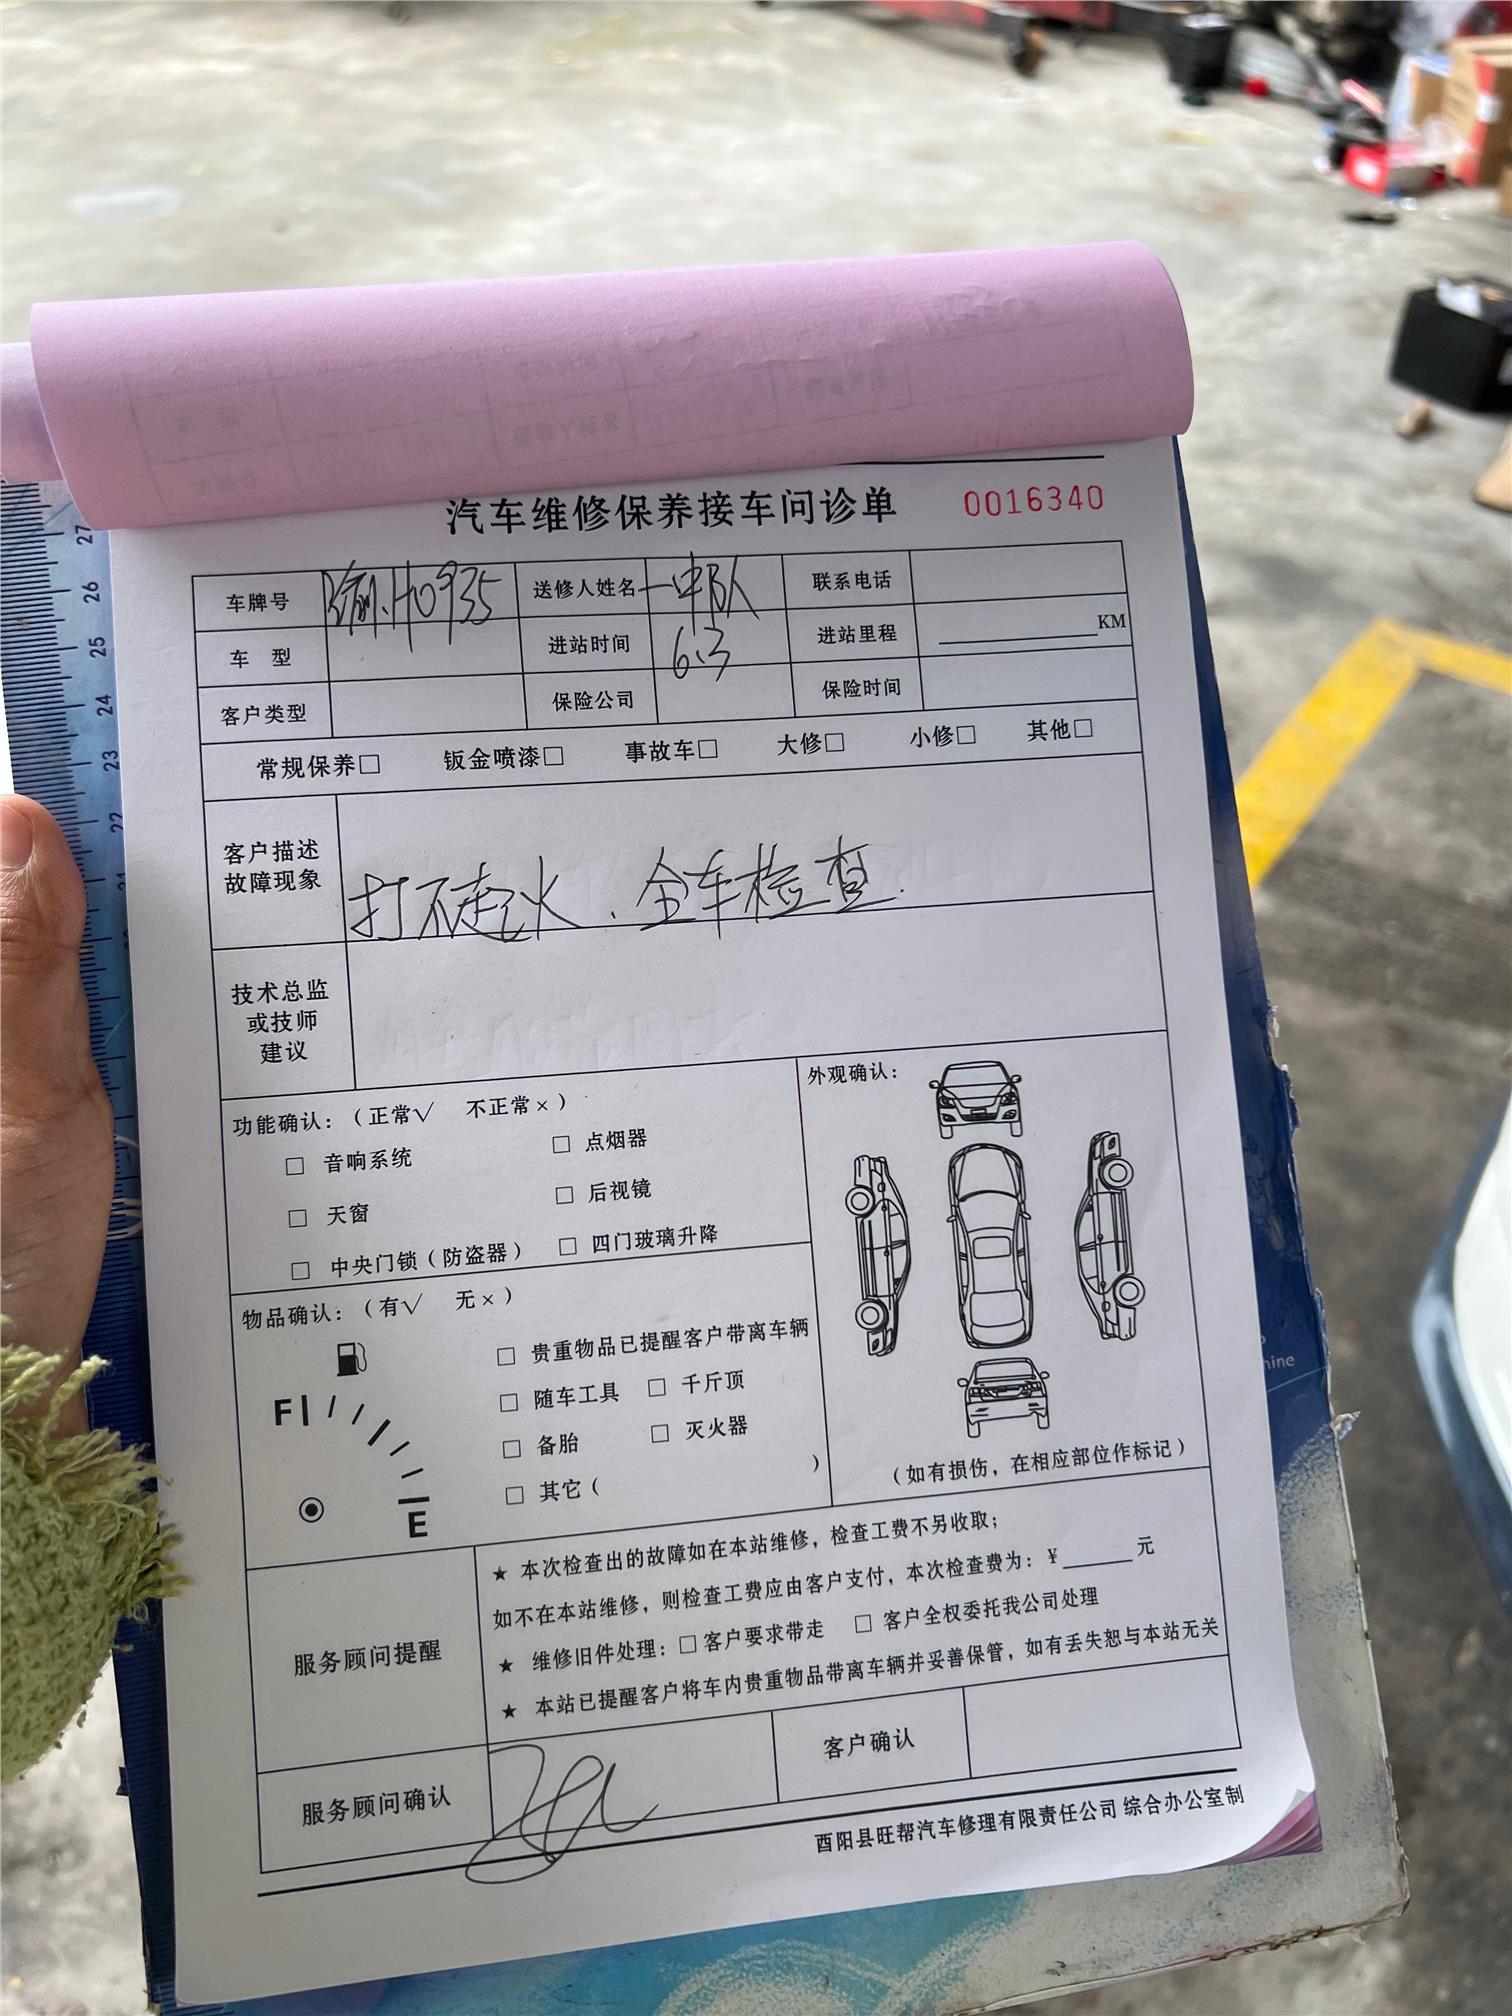 汽车维修保养接车问诊单 0016340
车牌号 渝A·H0935 送修人姓名 一中队 联系电话
车 型 进站时间 6.3 进站里程 KM
客户类型 保险公司 保险时间
常规保养□ 钣金喷漆□ 事故车□ 大修□ 小修□ 其他□
客户描述
故障现象
打不起火.全车检查.
技术总监
或技师
建议
功能确认：（正常√ 不正常×）
□ 音响系统 □ 点烟器
□ 天窗 □ 后视镜
□ 中央门锁（防盗器） □ 四门玻璃升降
外观确认：
（如有损伤，在相应部位作标记）
物品确认：（有√ 无×）
F
E
□ 贵重物品已提醒客户带离车辆
□ 随车工具 □ 千斤顶
□ 备胎 □ 灭火器
□ 其它（ ）
服务顾问提醒
★ 本次检查出的故障如在本站维修，检查工费不另收取；
如不在本站维修，则检查工费应由客户支付，本次检查费为：¥______元
★ 维修旧件处理：□ 客户要求带走 □ 客户全权委托我公司处理
★ 本站已提醒客户将车内贵重物品带离车辆并妥善保管，如有丢失恕与本站无关
服务顾问确认 客户确认
酉阳县旺帮汽车修理有限责任公司 综合办公室制
27
26
25
24
23
22